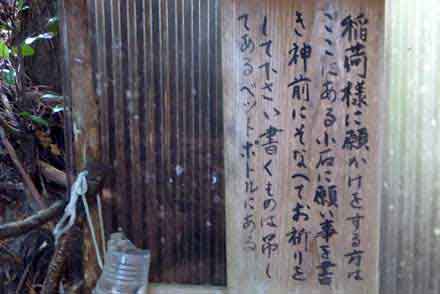 稲荷様に願かけをする方は
ここにある小石に願い事を書
き神前にそなへてお祈りを
して下さい書くものは吊し
てあるペットボトルにある